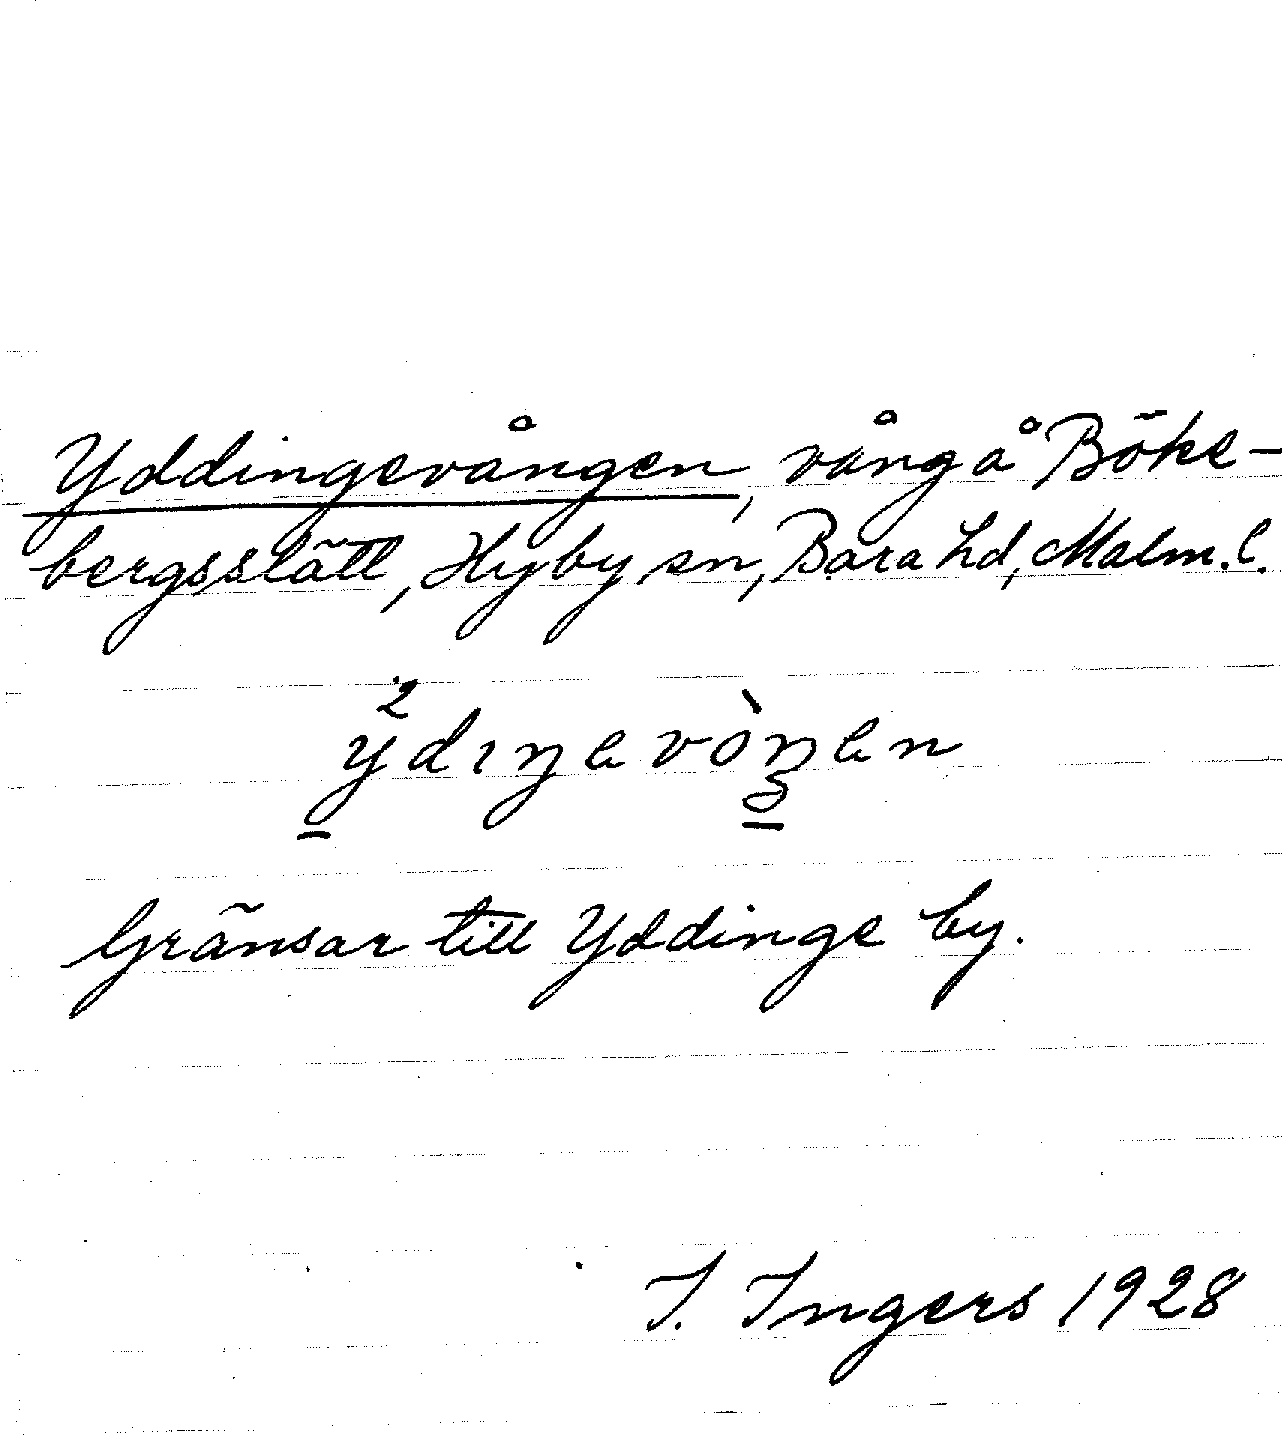 Yddingevången, vång å Böke-
bergsslätt, Hyby sn, Bara hd, Malm. l.
ydıŋevòŋen
Gränsar till Yddinge by.
I. Ingers 1928